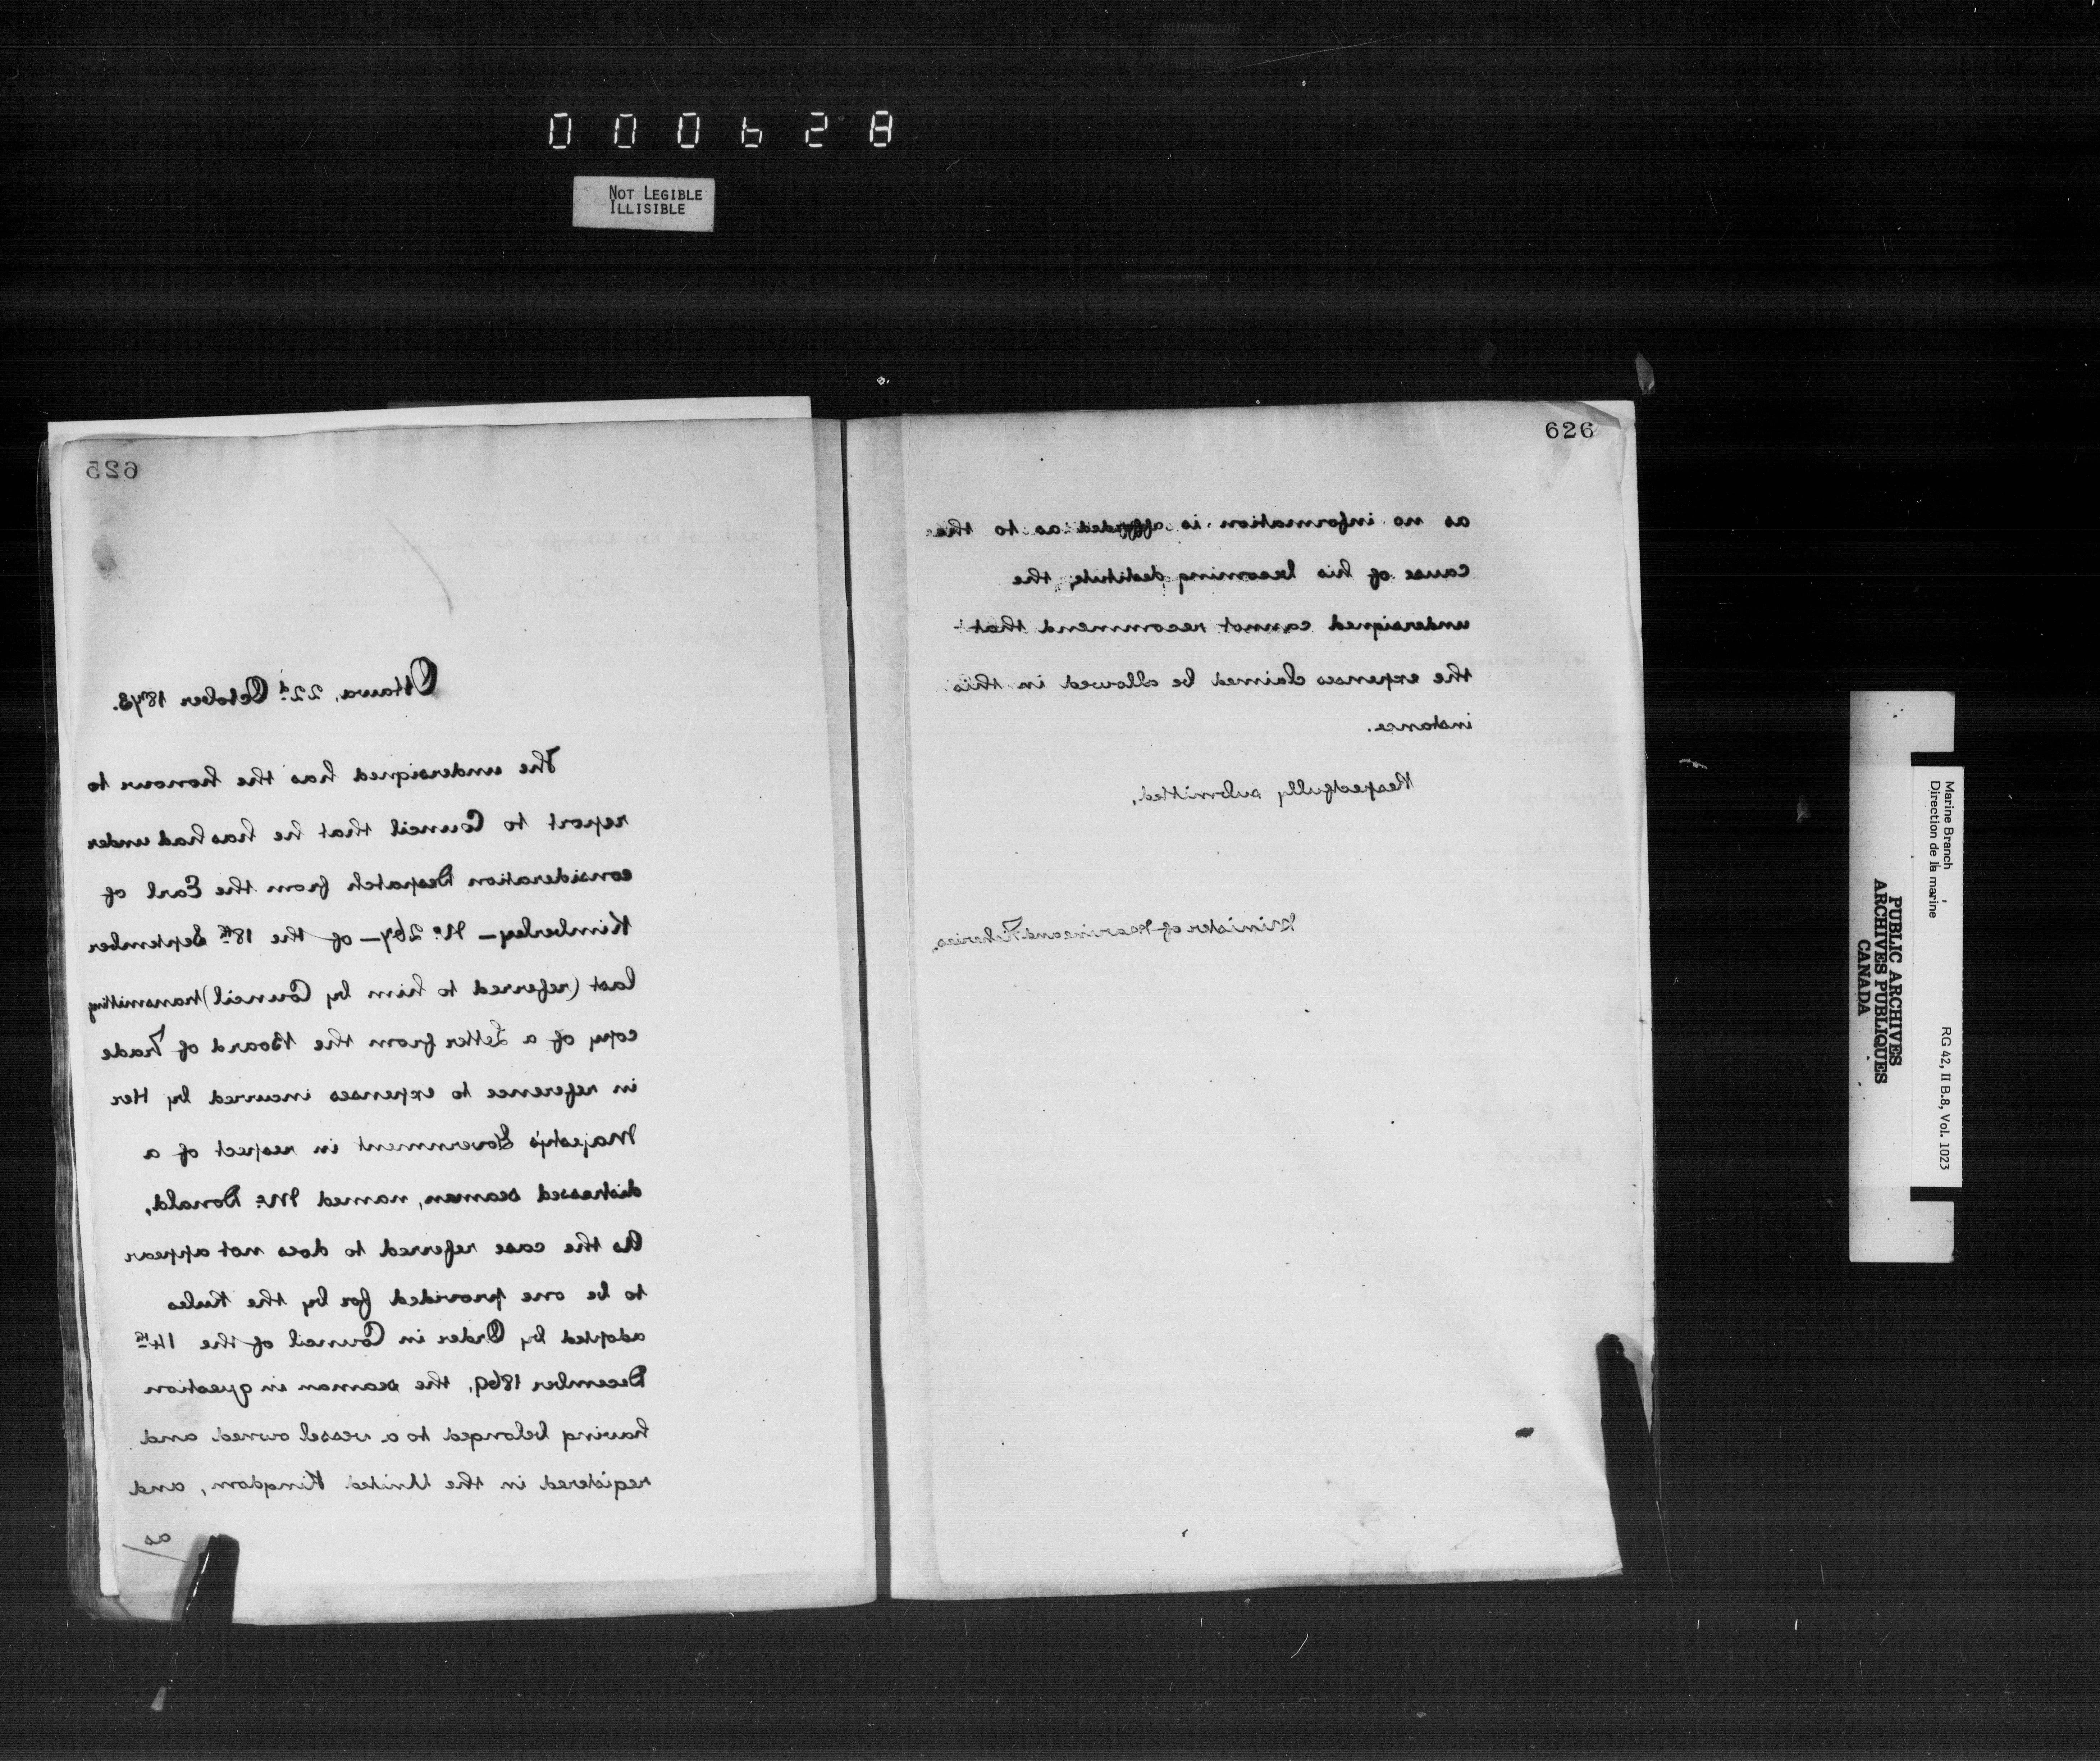 000628
NOT LEGIBLE
ILLISIBLE
625
Ottawa, 22d October 1873.
The undersigned has the honour to
report to Council that he has had under
consideration Despatch from the Earl of
Kimberley – No. 267 – of the 18th September
last (referred to him by Council) transmitting
copy of a Letter from the Board of Trade
in reference to expenses incurred by Her
Majesty's Government in respect of a
distressed seaman, named Mc. Donald,
As the case referred to does not appear
to be one provided for by the Rules
adopted by Order in Council of the 14th
December 1869, the seaman in question
having belonged to a vessel owned and
registered in the United Kingdom, and
as
626
as no information is afforded as to the
cause of his becoming destitute, the
undersigned cannot recommend that
the expenses claimed be allowed in this
instance.
Respectfully submitted,
Minister of Marine and Fisheries.
Marine Branch
Direction de la marine
RG 42, II B.8, Vol. 1023
PUBLIC ARCHIVES
ARCHIVES PUBLIQUES
CANADA